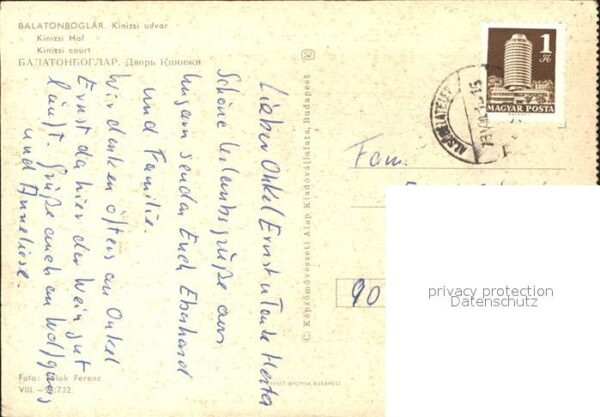 BALATONBOGLÁR. Kinizsi udvar
Kinizsi Hof
Kinizsi court
БАЛАТОНБОГЛАР. Дворь Кинижи
Lieber Onkel Ernst u. Tante Herta
Schöne Urlaubsgrüße aus
Ungarn senden Euch Eberhard
und Familie.
Wir denken öfters an Onkel
Ernst da hier der Wein gut
läuft. Grüße auch an Wolfgang
und Anneliese.
Foto: Ferenc
VIII.
C. Képzőművészeti Alap Kiadóvállalata, Budapest
OFFSET-NYOMDA BUDAPEST
1 Ft
MAGYAR POSTA
Fam.
90
privacy protection
Datenschutz